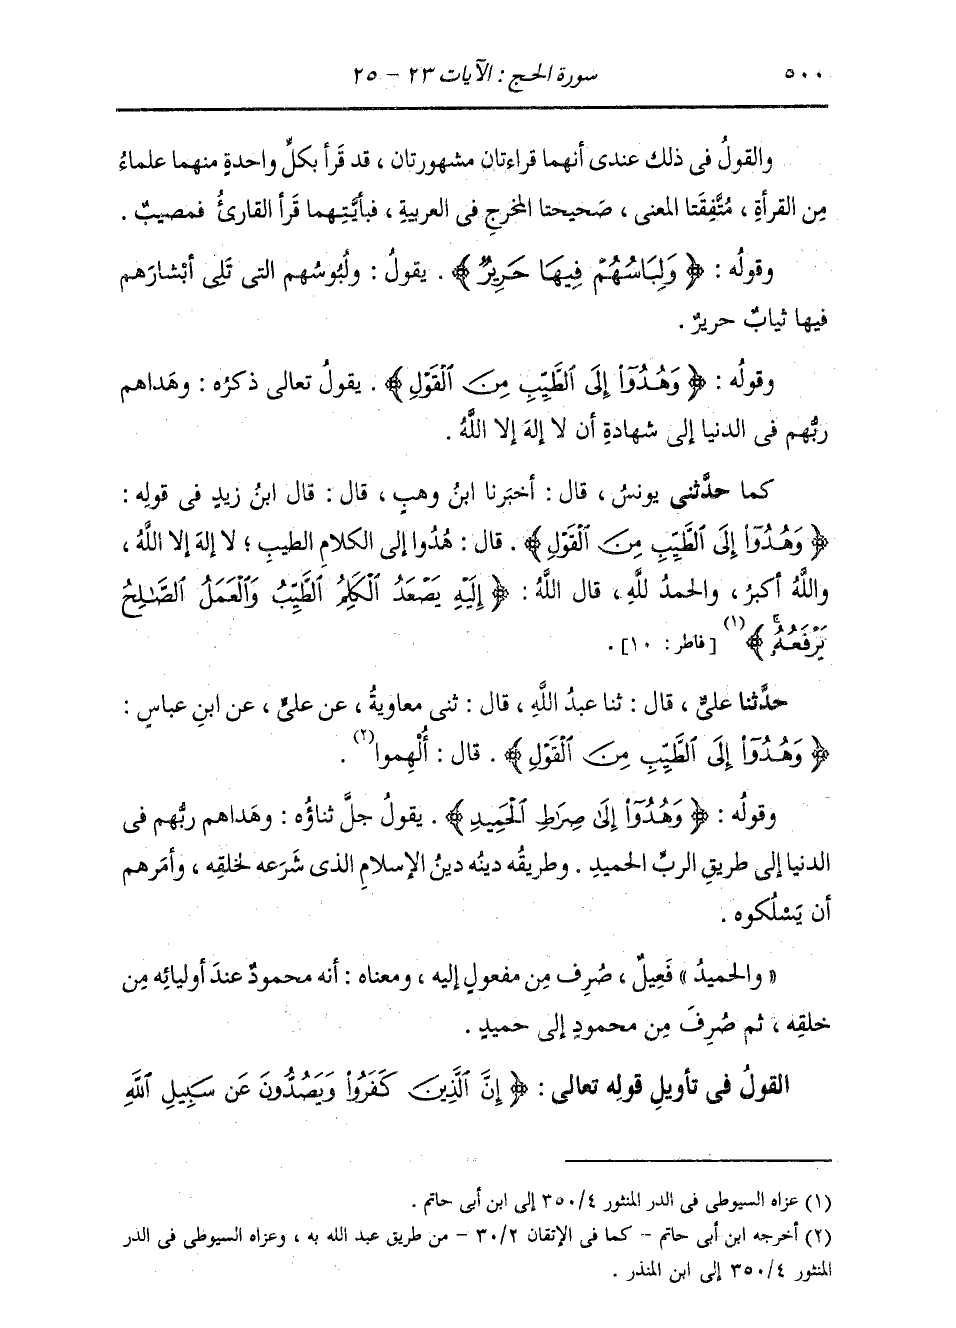 ٥٠٠ سورة الحج : الآيات ٢٣ - ٢٥
والقولُ فى ذلك عندى أنهما قراءتان مشهورتان ، قد قَرأ بكلِّ واحدةٍ منهما علماءُ
مِن القرأةِ ، مُتَّفِقَتا المعنى ، صَحيحتا المَخْرجِ فى العربيةِ ، فبأيَّتِهما قَرأ القارئُ فمصيبٌ .
وقولُه : ﴿ وَلِبَاسُهُمْ فِيهَا حَرِيرٌ ﴾ . يقولُ : ولُبُوسُهم التى تَلِى أبْشارَهم
فيها ثيابٌ حريرٌ .
وقولُه : ﴿ وَهُدُوٓا۟ إِلَى ٱلطَّيِّبِ مِنَ ٱلْقَوْلِ ﴾ . يقولُ تعالى ذكرُه : وهَداهم
ربُّهم فى الدنيا إلى شهادةِ أن لا إلهَ إلا اللَّهُ .
كما حدَّثنى يونسُ ، قال : أخبَرنا ابنُ وهبٍ ، قال : قال ابنُ زيدٍ فى قولِه :
﴿ وَهُدُوٓا۟ إِلَى ٱلطَّيِّبِ مِنَ ٱلْقَوْلِ ﴾ . قال : هُدُوا إلى الكلامِ الطيبِ ؛ لا إلهَ إلا اللَّهُ ،
واللَّهُ أكبرُ ، والحمدُ للَّهِ ، قال اللَّهُ : ﴿ إِلَيْهِ يَصْعَدُ ٱلْكَلِمُ ٱلطَّيِّبُ وَٱلْعَمَلُ ٱلصَّـٰلِحُ
يَرْفَعُهُۥۚ ﴾(١) [ فاطر : ١٠] .
حدَّثنا علىٌّ ، قال : ثنا عبدُ اللَّهِ ، قال : ثنى معاويةُ ، عن علىٍّ ، عن ابنِ عباسٍ :
﴿ وَهُدُوٓا۟ إِلَى ٱلطَّيِّبِ مِنَ ٱلْقَوْلِ ﴾ . قال : أُلْهِموا(٢) .
وقولُه : ﴿ وَهُدُوٓا۟ إِلَىٰ صِرَٰطِ ٱلْحَمِيدِ ﴾ . يقولُ جلَّ ثناؤُه : وهَداهم ربُّهم فى
الدنيا إلى طريقِ الربِّ الحميدِ . وطريقُه دينُه دينُ الإسلامِ الذى شَرَعه لخلقِه ، وأمَرهم
أن يَسْلُكوه .
« والحميدُ » فَعِيلٌ ، صُرِف مِن مفعولٍ إليه ، ومعناه : أنه محمودٌ عندَ أوليائِه مِن
خلقِه ، ثم صُرِفَ مِن محمودٍ إلى حميدٍ .
القولُ فى تأويلِ قولِه تعالى : ﴿ إِنَّ ٱلَّذِينَ كَفَرُوا۟ وَيَصُدُّونَ عَن سَبِيلِ ٱللَّهِ
(١) عزاه السيوطى فى الدر المنثور ٣٥٠/٤ إلى ابن أبى حاتم .
(٢) أخرجه ابن أبى حاتم - كما فى الإتقان ٣٠/٢ - من طريق عبد الله به ، وعزاه السيوطى فى الدر
المنثور ٣٥٠/٤ إلى ابن المنذر .